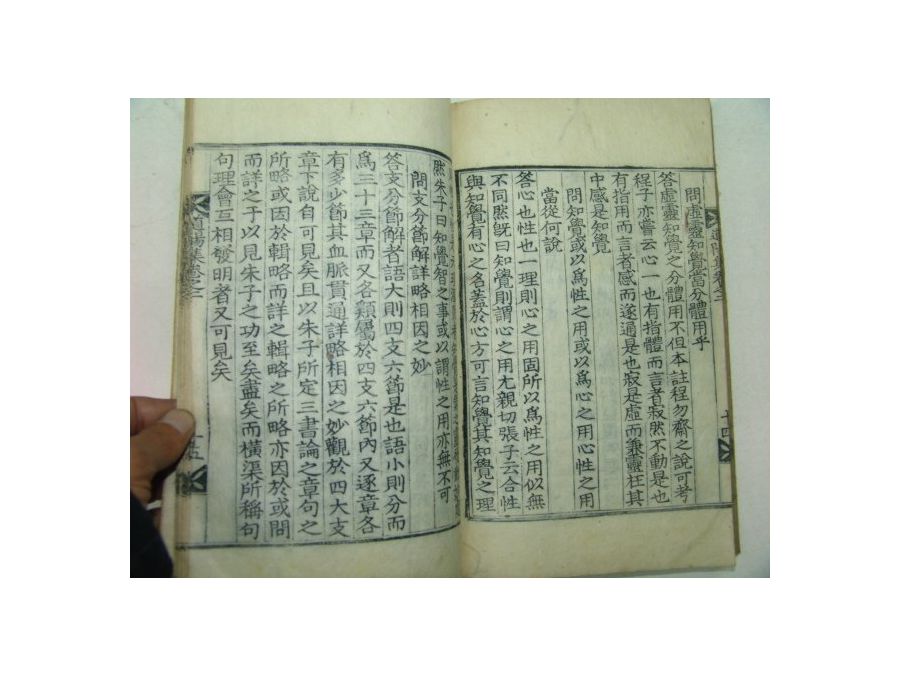 問虛靈知覺當分體用乎
答虛靈知覺之分體用不但本註程勿齋之說可考
程子亦嘗云心一也有指體而言者寂然不動是也
有指用而言者感而遂通是也寂是虛而兼靈在其
中感是知覺
問知覺或以爲性之用或以爲心之用心性之用
當從何說
答心也性也一理則心之用固所以爲性之用似無
不同然旣曰知覺則謂心之用尤親切張子云合性
與知覺有心之名蓋於心方可言知覺其知覺之理
然朱子曰知覺智之事或以謂性之用亦無不可
問支分節解詳略相因之妙
答支分節解者語大則四支六節是也語小則分而
爲三十三章而又各類屬於四支六節內又逐章各
有多少節其血脈貫通詳略相因之妙觀於四大支
章下說自可見矣且以朱子所定三書論之章句之
所略或因於輯略而詳之輯略之所略亦因於或問
而詳之于以見朱子之功至矣盡矣而橫渠所稱句
句理會互相發明者又可見矣
十四
十五